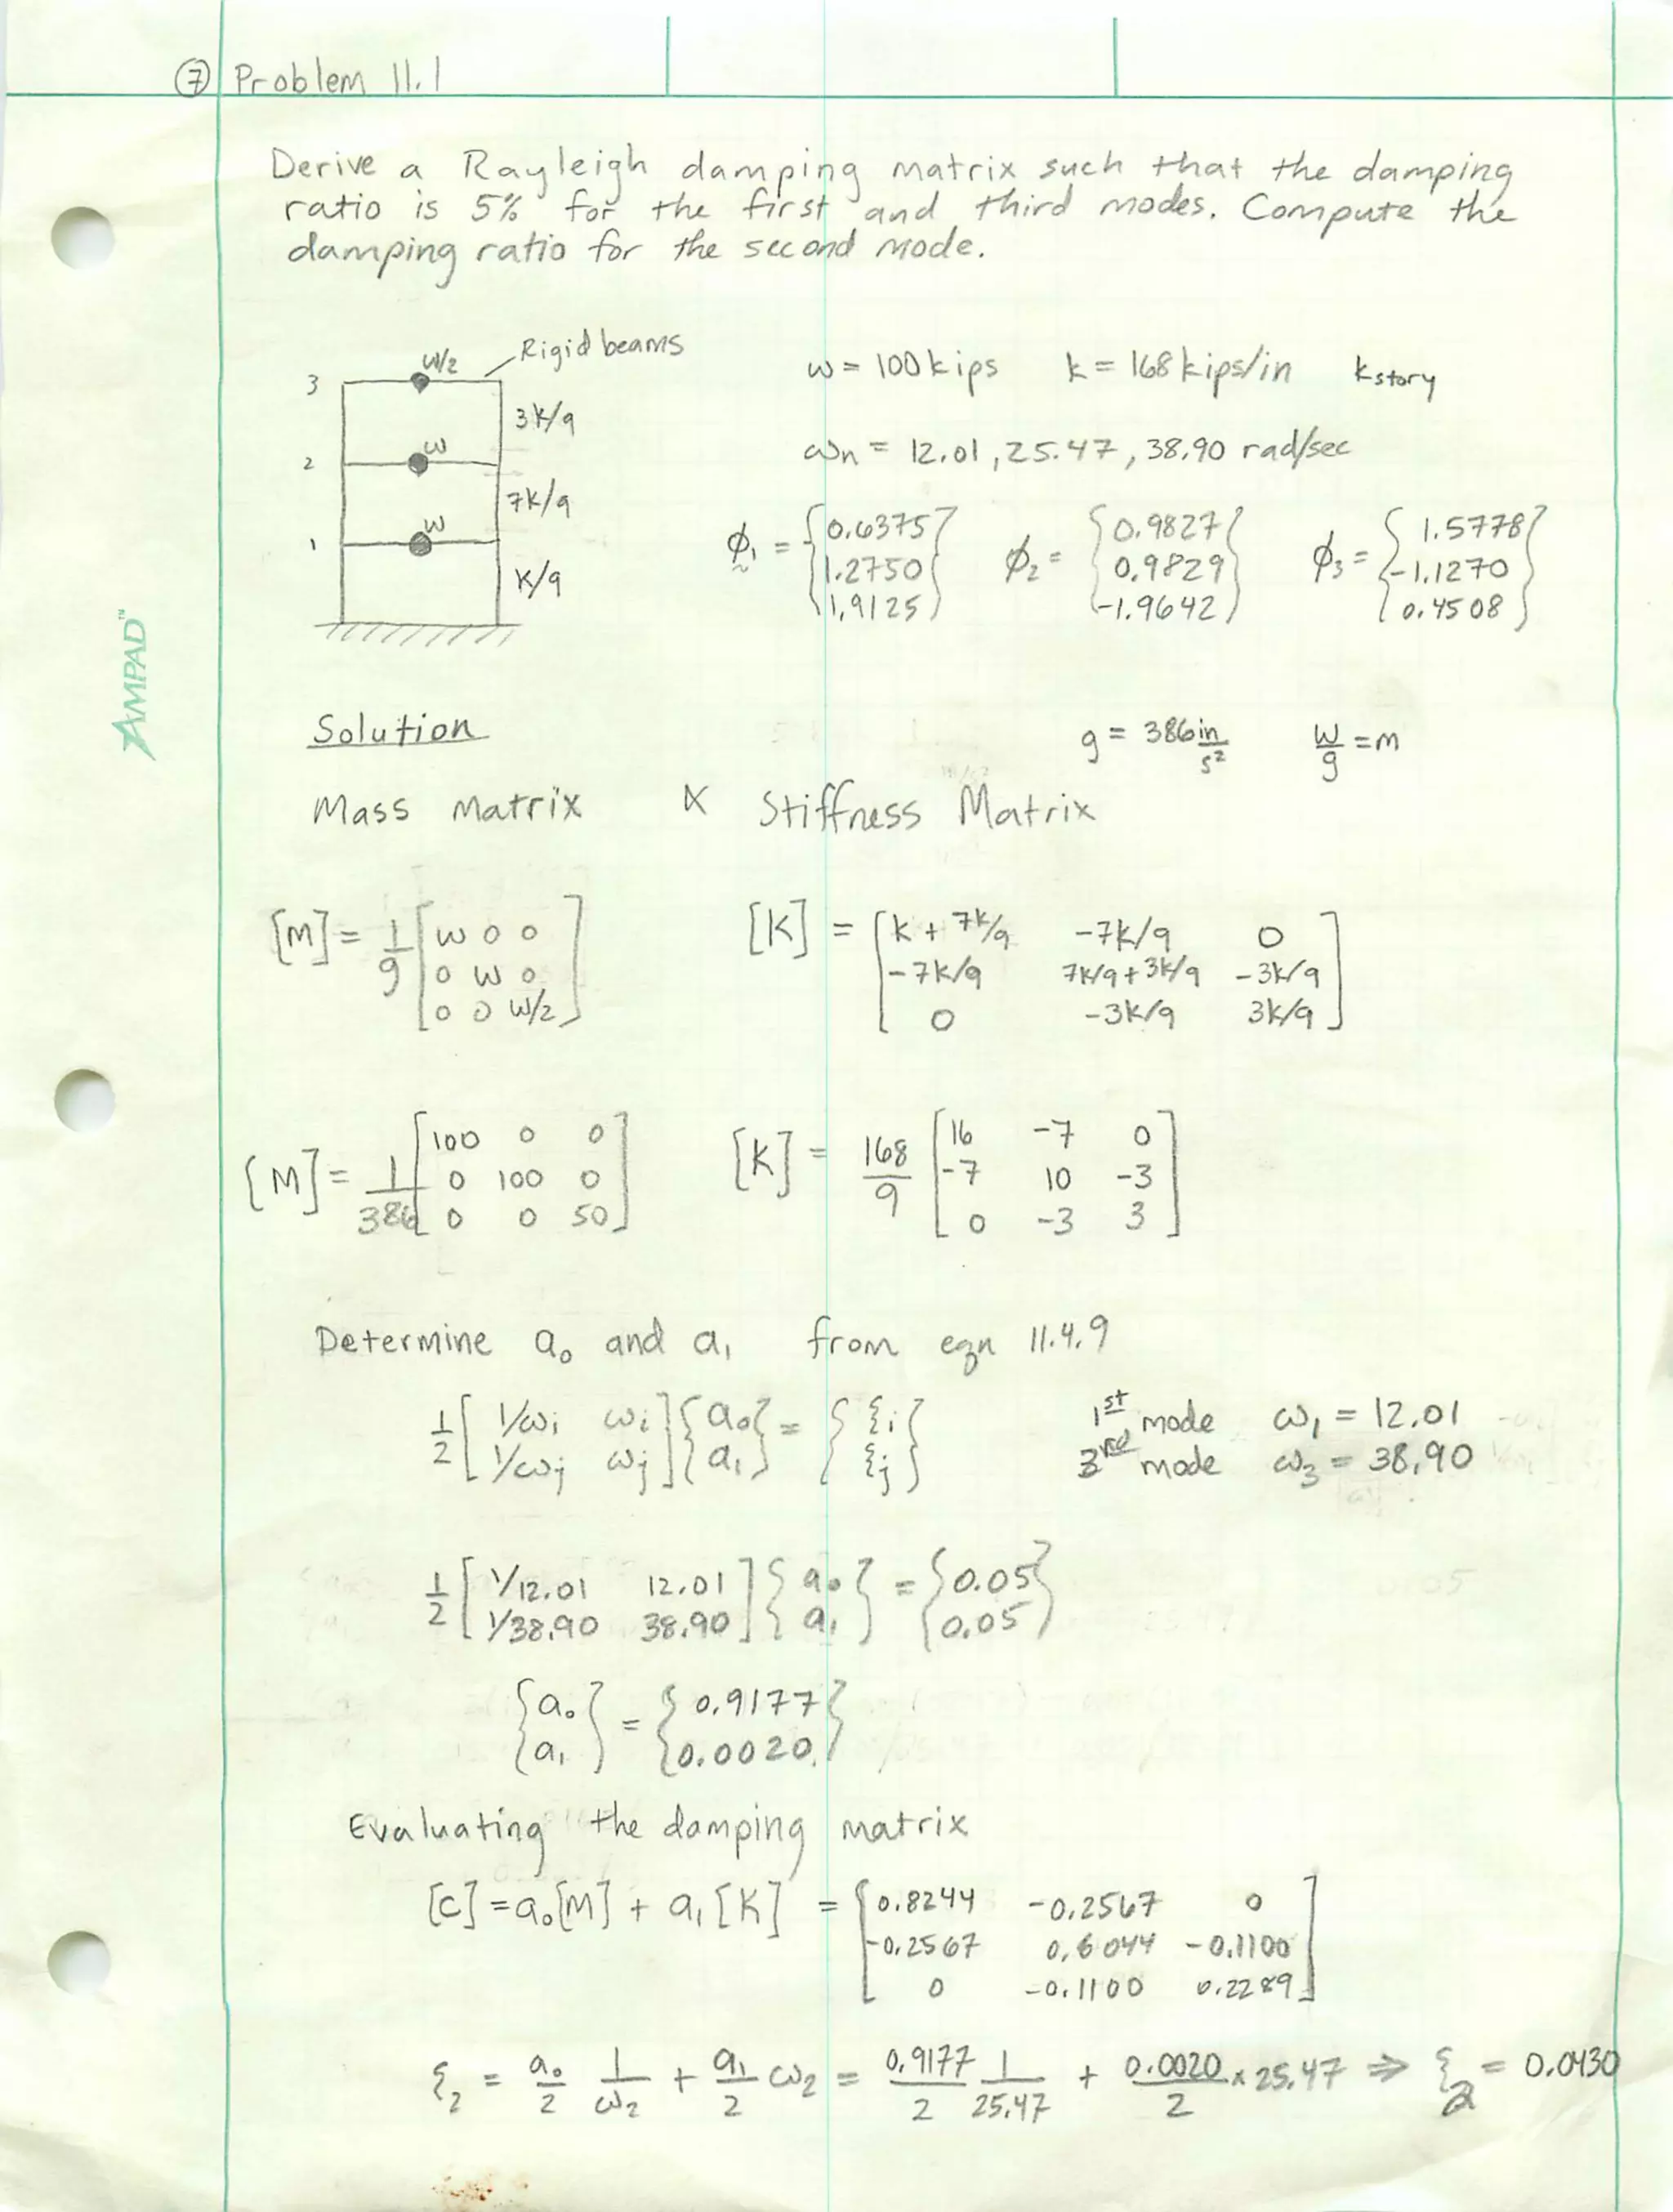 ⑦ Problem 11.1
Derive a Rayleigh damping matrix such that the damping
ratio is 5% for the first and third modes. Compute the
damping ratio for the second mode.
w/2 Rigid beams
3
3k/9
w
2
7k/9
w
1
k/9
w = 100 kips k = 168 kips/in kstory
ωn = 12.01, 25.47, 38.90 rad/sec
ϕ1 = {0.6375 1.2750 1.9125} ϕ2 = {0.9827 0.9829 -1.9642} ϕ3 = {1.5778 -1.1270 0.4508}
AMPAD™
Solution g = 386 in/s² w/g = m
Mass Matrix & Stiffness Matrix
[M] = 1/g [w 0 0
0 w 0
0 0 w/2]
[K] = [k + 7k/9 -7k/9 0
-7k/9 7k/9+3k/9 -3k/9
0 -3k/9 3k/9]
[M] = 1/386 [100 0 0
0 100 0
0 0 50]
[K] = 168/9 [16 -7 0
-7 10 -3
0 -3 3]
Determine a0 and a1 from eqn 11.4.9
1/2 [1/ωi ωi
1/ωj ωj] {a0 a1} = {ξi ξj}
1st mode ω1 = 12.01
3rd mode ω3 = 38.90
1/2 [1/12.01 12.01
1/38.90 38.90] {a0 a1} = {0.05 0.05}
{a0 a1} = {0.9177 0.0020}
Evaluating the damping matrix
[C] = a0[M] + a1[K] = [0.8244 -0.2567 0
-0.2567 0.6044 -0.1100
0 -0.1100 0.2289]
ξ2 = a0/2 1/ω2 + a1/2 ω2 = 0.9177/2 1/25.47 + 0.0020/2 × 25.47 ⇒ ξ2 = 0.0430